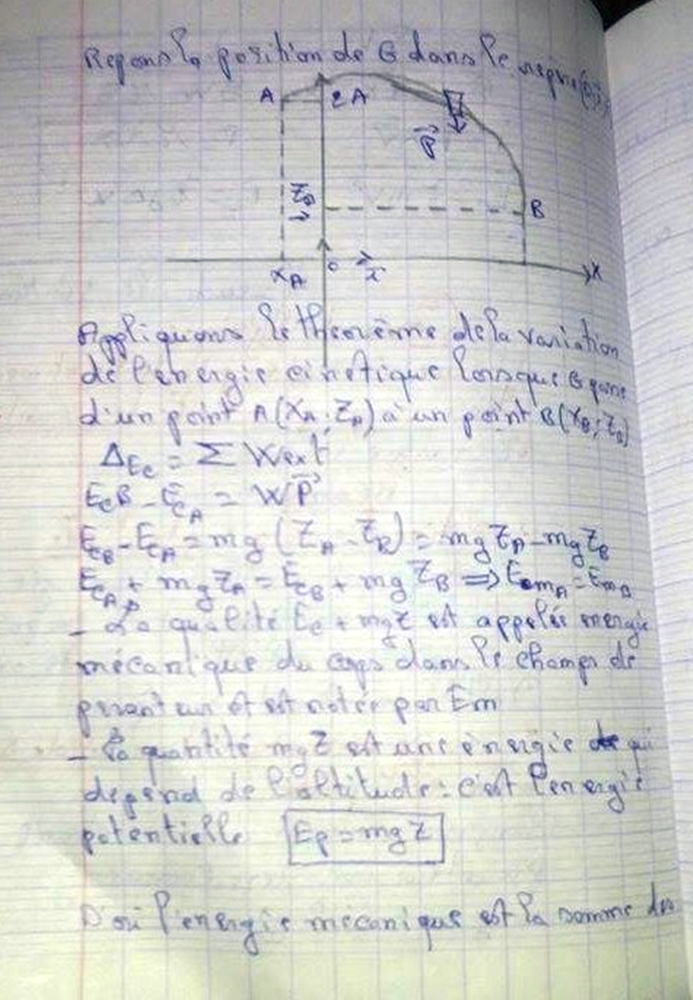 Repons la position de G dans le repère (O;
A ZA
P
ZB
B
XA O i X
Appliquons le théorème de la variation
de l'énergie cinétique lorsque G passe
d'un point A(XA; ZA) à un point B(XB; ZB)
ΔEc = Σ Wext
EcB - EcA = WP
EcB - EcA = mg (ZA - ZB) = mgZA - mgZB
EcA + mgZA = EcB + mgZB ⇒ EmA = EmB
- La qualité Ec + mgZ est appelée énergie
mécanique du corps dans le champ de
pesanteur et est notée par Em
- La quantité mgZ est une énergie qui
dépend de l'altitude : c'est l'énergie
potentielle Ep = mgZ
D'où l'énergie mécanique est la somme des